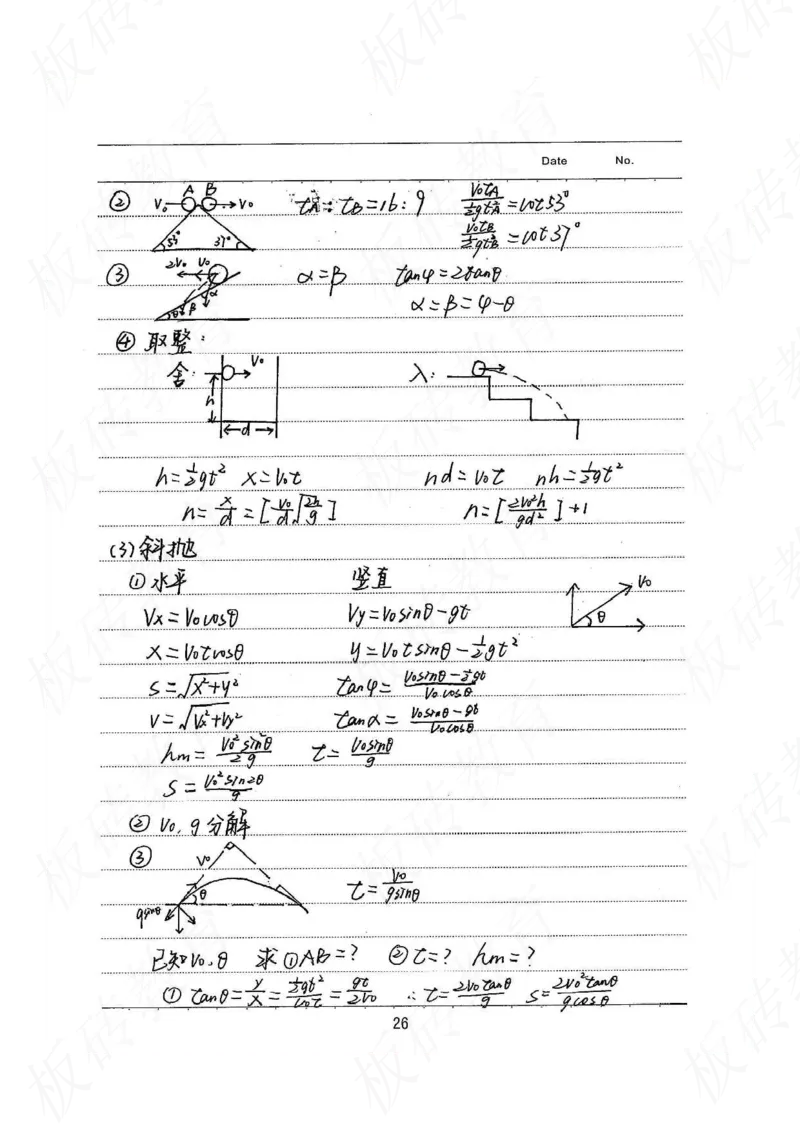 Date No.
② A B V₀ V₀ 53° 37° tA : tB = 16 : 9 V₀tA/(½gtA²) = cot53°
V₀tB/(½gtB²) = cot37°
③ 2V₀ V₀ α β θ α=β tanφ=2tanθ
α=β=φ-θ
④ 取整:
舍: V₀ h d 入:
h=½gt² x=V₀t nd=V₀t nh=½gt²
n=x/d=[V₀/d √(2h/g)] n=[2V₀²h/gd²]+1
(3)斜抛
①水平 竖直 V₀ θ
Vx=V₀cosθ Vy=V₀sinθ-gt
x=V₀tcosθ y=V₀tsinθ-½gt²
s=√(x²+y²) tanφ=(V₀sinθ-½gt)/(V₀cosθ)
V=√(Vx²+Vy²) tanα=(V₀sinθ-gt)/(V₀cosθ)
hm=V₀²sin²θ/2g t=V₀sinθ/g
S=V₀²sin2θ/g
②V₀,g分解
③ V₀ θ gsinθ t=V₀/gsinθ
已知V₀,θ 求①AB=? ②t=? hm=?
①tanθ=y/x=½gt²/V₀t=gt/2V₀ ∴t=2V₀tanθ/g S=2V₀²tanθ/gcosθ
26
板砖教育